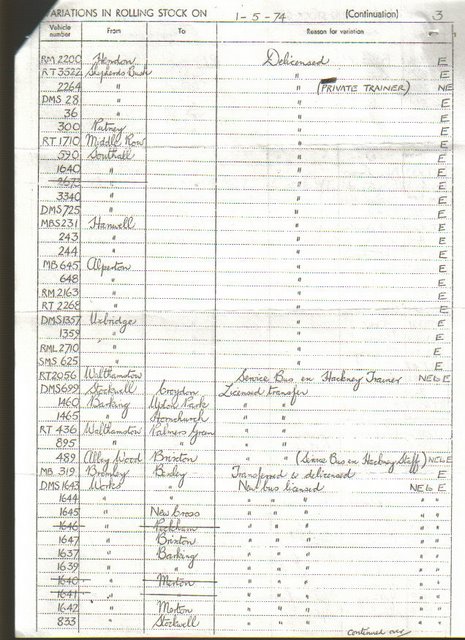 VARIATIONS IN ROLLING STOCK ON 1-5-74 (Continuation) 3
Vehicle number From To Reason for variation
RM 2200 Hendon Delicensed E
RT 3522 Shepherds Bush " E
2264 " " (PRIVATE TRAINER) NE
DMS 28 " " E
36 " " E
300 Putney " E
RT 1710 Middle Row " E
590 Southall " E
1640 " " E
2673 "
3340 " " E
DMS 725 " " E
MBS 231 Hanwell " E
243 " " E
244 " " E
MB 645 Alperton " E
648 " " E
RM 2163 " " E
RT 2268 " " E
DMS 1357 Uxbridge " E
1359 " " E
RML 2710 " " E
SMS 625 " " E
RT 2056 Walthamstow Service Bus en Hackney Trainer NE to E
DMS 699 Stockwell Croydon Licensed transfer E
1460 Barking Upton Park " " E
1465 " Hornchurch " " E
RT 436 Walthamstow Palmers Green " " E
895 " " " " E
489 Abbey Wood Brixton " " (Service Bus en Hackney Staff) NE to E
MB 319 Bromley Bexley Transferred & delicensed E
DMS 1643 Works " New bus licensed NE to E
1644 " " " " " " "
1645 " New Cross " " " " "
1646 " Peckham " " " " "
1647 " Brixton " " " " "
1637 " Barking " " " " "
1639 " " " " " " "
1640 " Merton " " " " "
1641 " " " " " " "
1642 " Merton " " " " "
833 " Stockwell " " " " "
continued over